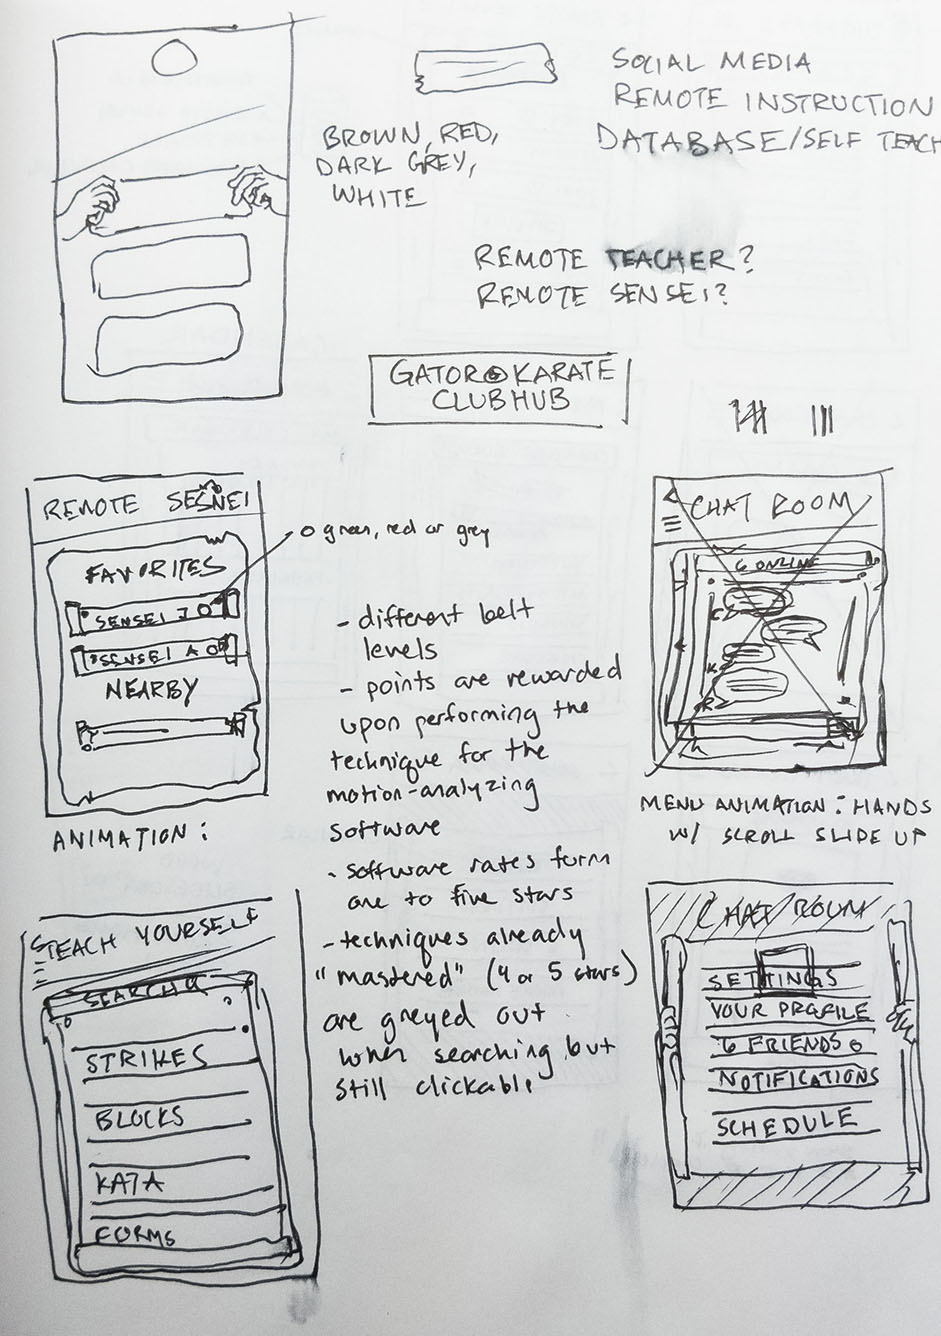 SOCIAL MEDIA
REMOTE INSTRUCTION
DATABASE/SELF TEACH
BROWN, RED,
DARK GREY,
WHITE
REMOTE TEACHER?
REMOTE SENSEI?
GATOR KARATE
CLUB HUB
REMOTE SESNEI
green, red or grey
FAVORITES
SENSEI J
SENSEI A
NEARBY
ANIMATION:
- different belt
levels
- points are rewarded
upon performing the
technique for the
motion-analyzing
software
- software rates form
one to five stars
- techniques already
"mastered" (4 or 5 stars)
are greyed out
when searching but
still clickable
CHAT ROOM
6 ONLINE
MENU ANIMATION: HANDS
W/ SCROLL SLIDE UP
TEACH YOURSELF
SEARCH
STRIKES
BLOCKS
KATA
FORMS
CHAT ROOM
SETTINGS
YOUR PROFILE
6 FRIENDS
NOTIFICATIONS
SCHEDULE